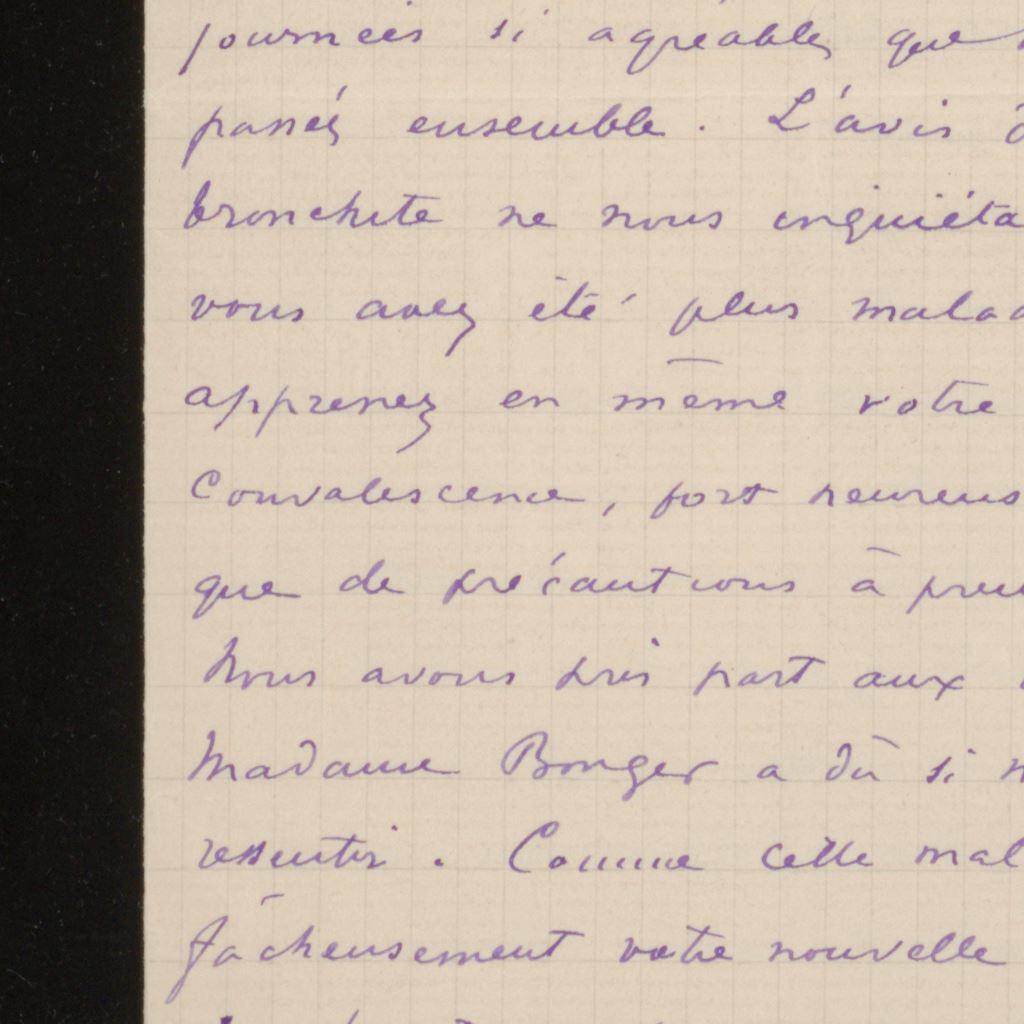 journées si agréables que
passés ensemble. L'avis
bronchite ne nous inquiéta
vous avez été plus malad
apprenez en même votre
convalescence, fort heureus
que de précautions à pren
Nous avons pris part aux
Madame Bonger a dû si
ressentir. Comme cette mal
fâcheusement votre nouvelle